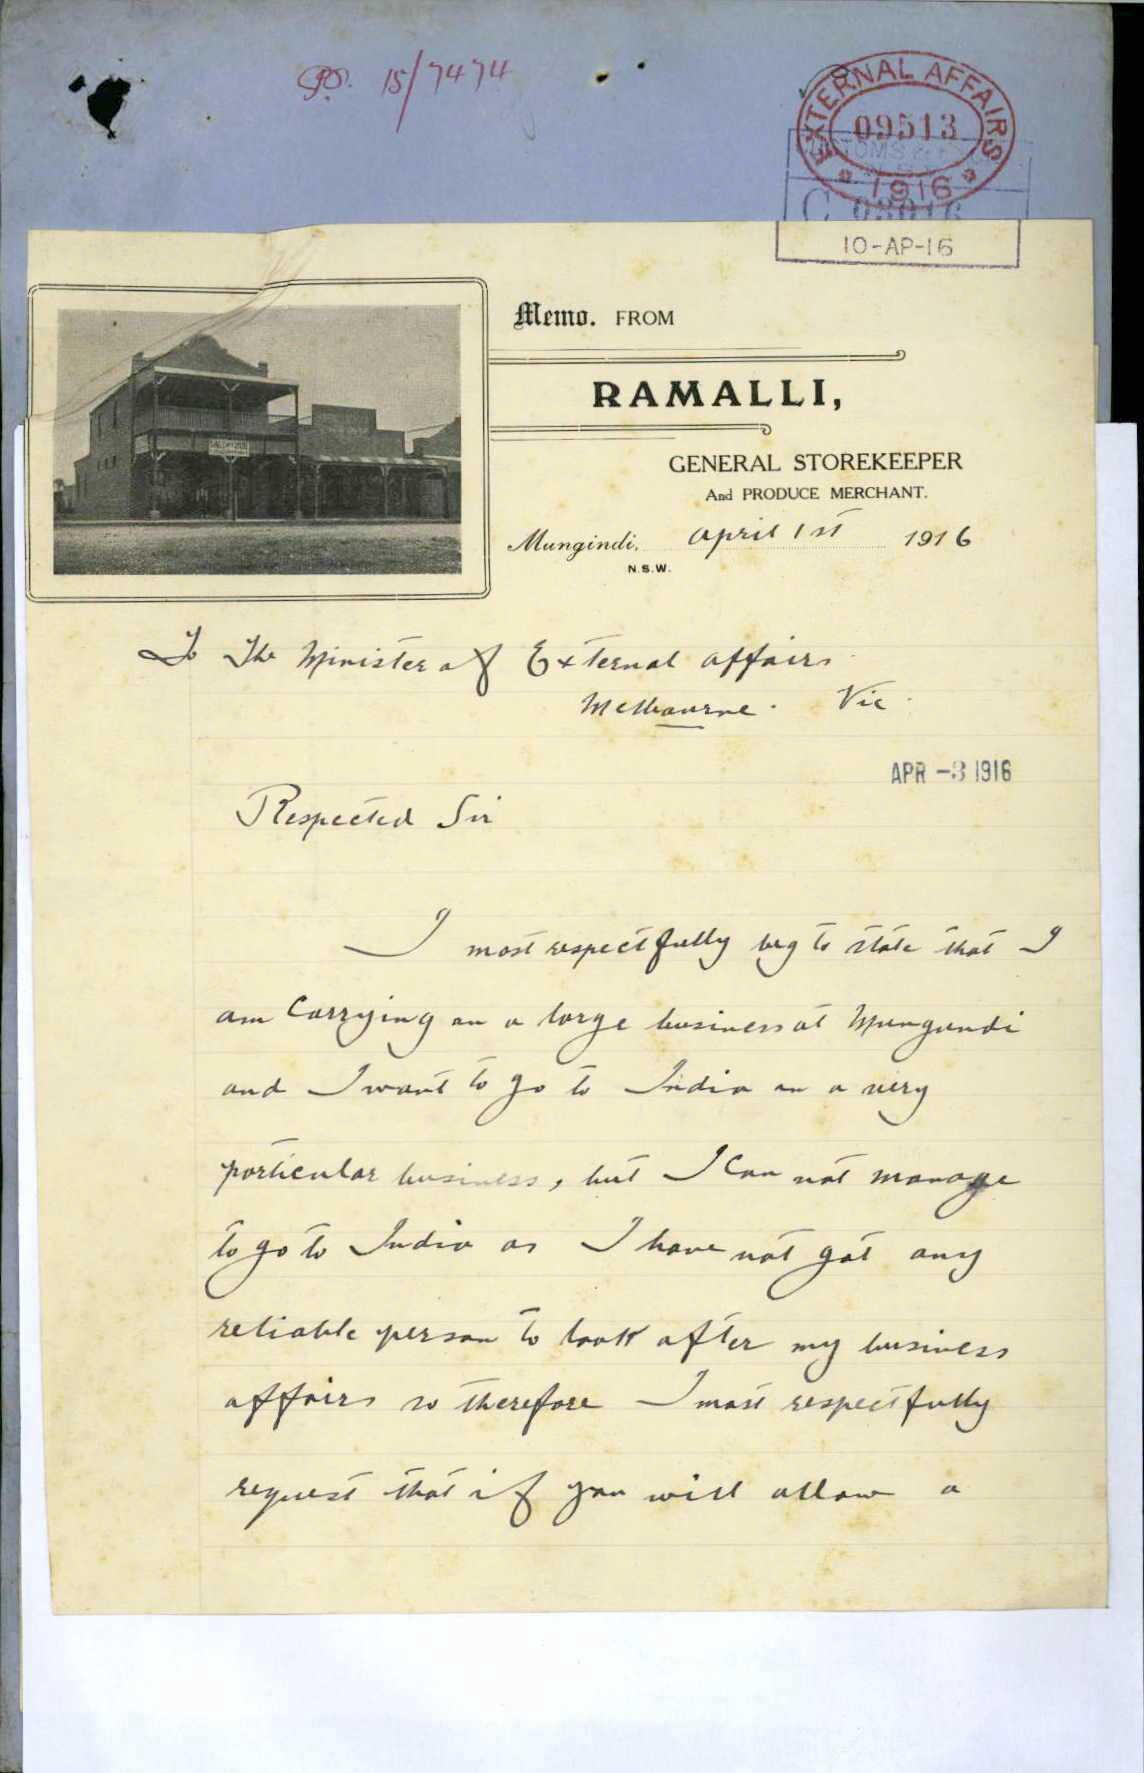 15/7474
EXTERNAL AFFAIRS
09513
1916
10-AP-16
Memo. FROM
RAMALLI,
GENERAL STOREKEEPER
And PRODUCE MERCHANT.
Mungindi, April 1st 1916
N.S.W.
To The Minister of External Affairs
Melbourne. Vic.
APR -3 1916
Respected Sir
I most respectfully beg to state that I
am Carrying on a large business at Mungundi
and I want to go to India on a very
particular business, but I Can not manage
to go to India as I have not got any
reliable person to look after my business
affairs so therefore I most respectfully
request that if you will allow a